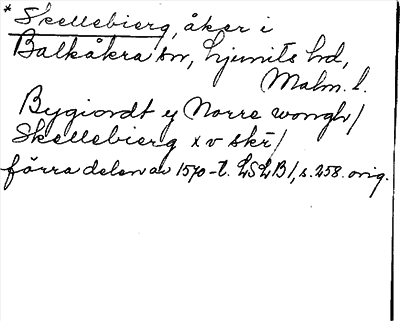 * Skellebierg, åker i
Balkåkra sn, Ljunits hd,
Malm. l.
Bygiordt y Norre wongh /
Skellebierg x v skr /
förra delen av 1570-t. LSLB /, s. 258. orig.